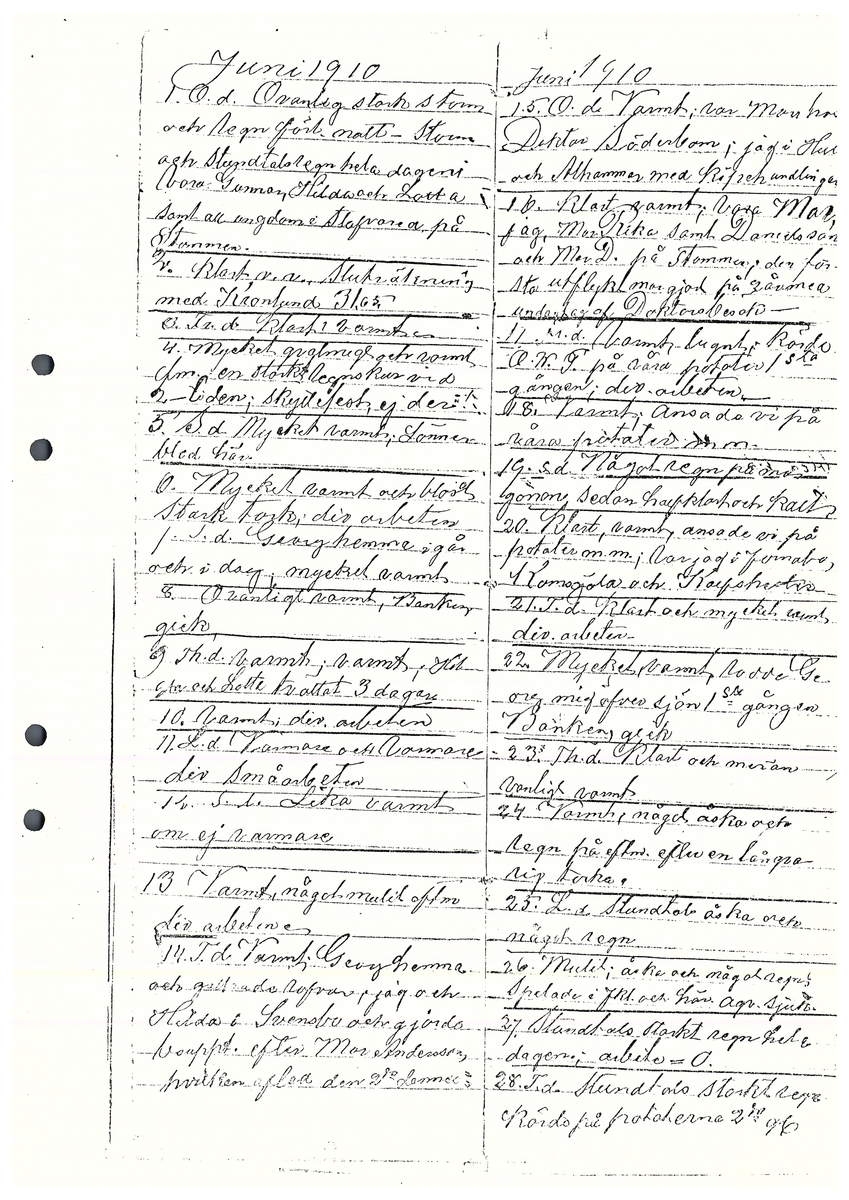 Juni 1910
1. O.d. Ovanlig stark storm
och regn förl. natt – Storm
och stundtals regn hela dagen;
vora Gunnar, Hilda och Lotta
samt all ungdom i Stafvarea på
Stommen.
2. Klart, v.v., Sluträkning
med Kronlund 31,65
3. Fr.d. Klart, varmt
4. Mycket qvalmigt och varmt
fm. en stark regnskur vid
2-tiden; skyttefest, ej der
5. S.d. Mycket varmt; Lönner-
blad här
6. Mycket varmt och blåst
Stark tork; div. arbeten
7. T.d. Georg hemma i går
och i dag, mycket varmt
8. Ovanligt varmt, Banken
gick,
9 Th.d. Varmt; varmt,
och Lotta tvättat 3 dagar
10. Varmt; div. arbeten
11. L.d. Varmare och Varmare
div småarbeten
12. S.d. Lika varmt
om ej varmare
13 Varmt, något mulit eftm
div arbeten
14. T.d. Varmt; Georg hemma
och jag och
Hilda i Svensbo och gjorde
bouppt. efter Mor Anderson,
hvilken afled den 2dra dennes
Juni 1910
15. O.d. Varmt; var Mor hos
Doktor Söderbom; jag i
och Alhammar med Köpehandlingar
16. Klart, varmt; vora Mor,
jag, Mor Rika samt Danielsson
och Mor D. på Stommen; den för-
sta utflykt mor gjord på
Doktorsbesök –
17. Varmt, lugnt; Körde
O.K.F. på våra potater 1sta
gången; div. arbeten
18. Varmt; Ansade vi på
våra potater m.m.
19. s.d. Något regn på mor-
gonen, sedan halfklart och kallt
20. Klart, varmt, ansade vi på
potater m.m.; var jag i Fornabo,
och
21. T.d. Klart och mycket varmt
div. arbeten
22. Mycket, varmt, rodde Ge-
org mig öfver sjön 1sta gången
Banken gick
23. Th.d. Klart och mer än
vanligt varmt
24. Varmt, något åska och
regn på eftm. efter en långva-
rig torka.
25. L.d Stundtals åska och
något regn
26. Mulit; åska och något regn;
spelade i och här
27. Stundtals starkt regn hela
dagen; arbete = 0.
28. T.d. Stundtals starkt regn
Körde på potaterna 2dra gg